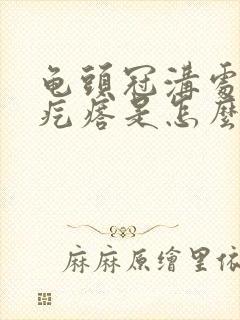 龟頭冠溝處
疙瘩是怎麼
麻麻原繪里依